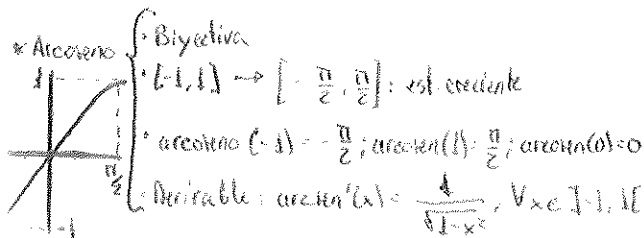 * Arcoseno
· Biyectiva
· [-1, 1] → [-π/2, π/2] : est. creciente
· arcoseno (-1) = -π/2 ; arcsen(1) = π/2 ; arcosen(0) = 0
· Derivable : arcsen'(x) = 1/√(1-x²) , ∀x∈ ]-1, 1[
1
π/2
-1